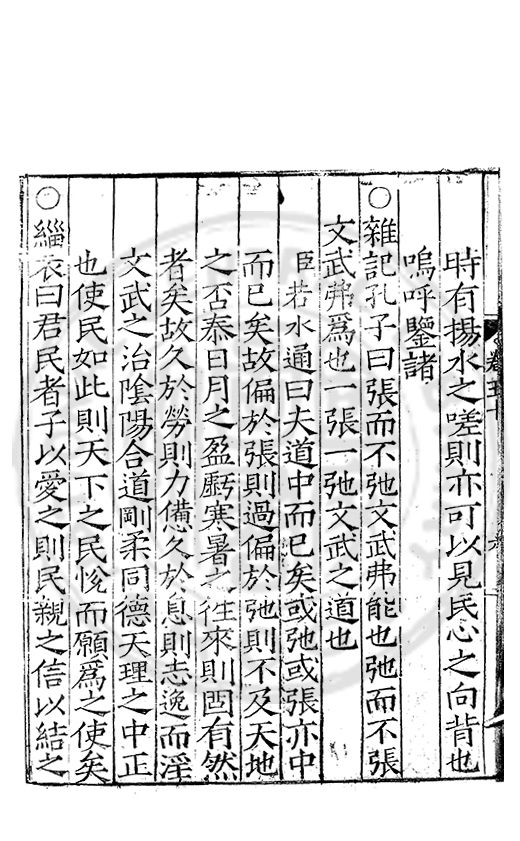 時有揚水之嗟則亦可以見民心之向背也
嗚呼鑒諸
○雜記孔子曰張而不弛文武弗能也弛而不張
文武弗為也一張一弛文武之道也
臣若水通曰夫道中而已矣或弛或張亦中
而已矣故偏於張則過偏於弛則不及天地
之否泰日月之盈虧寒暑之往來則固有然
者矣故久於勞則力憊久於息則志逸而淫
文武之治陰陽合道剛柔同德天理之中正
也使民如此則天下之民悅而願為之使矣
○緇衣曰君民者子以愛之則民親之信以結之